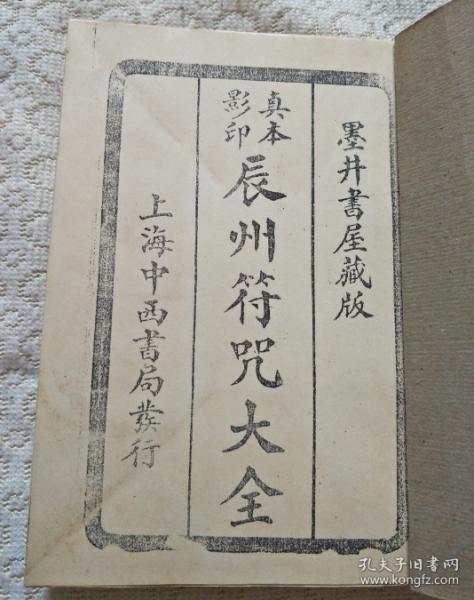 墨井書屋藏版
真本
影印
辰州符咒大全
上海中西書局發行
孔夫子旧书网
www.kongfz.com